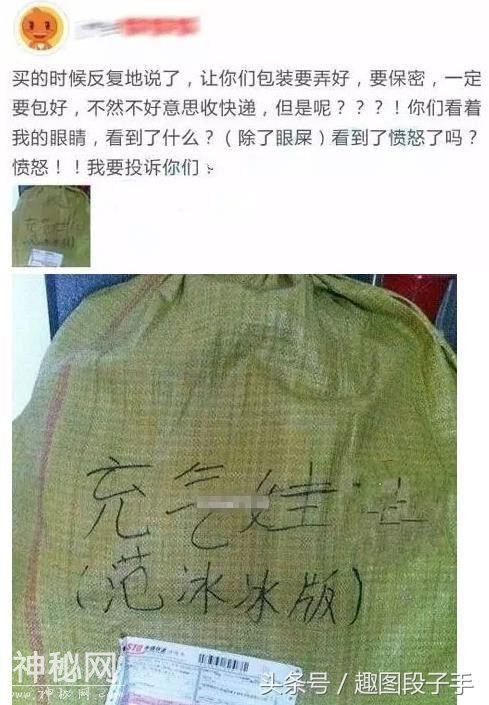 买的时候反复地说了，让你们包装要弄好，要保密，一定
要包好，不然不好意思收快递，但是呢？？？！你们看着
我的眼睛，看到了什么？（除了眼屎）看到了愤怒了吗？
愤怒！！我要投诉你们
充气娃
(范冰冰版)
STO
神秘网
头条号／趣图段子手